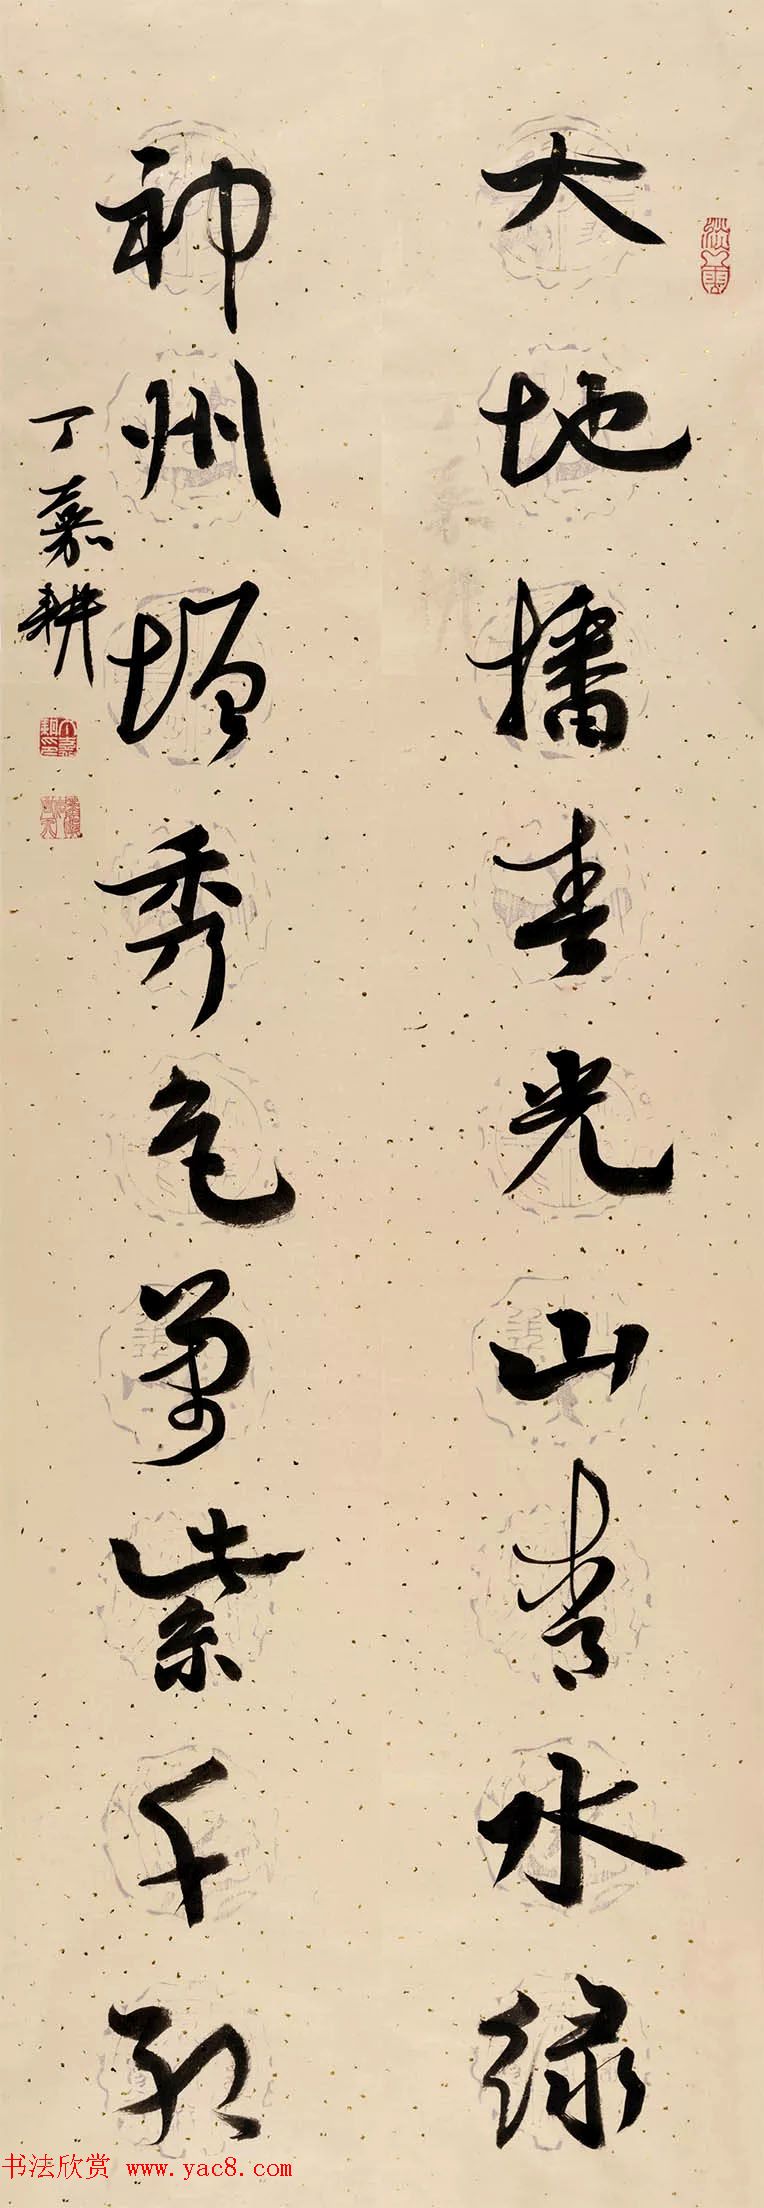 大地播春光山青水绿
神州增秀色万紫千红
丁嘉耕
书法欣赏 www.yac8.com